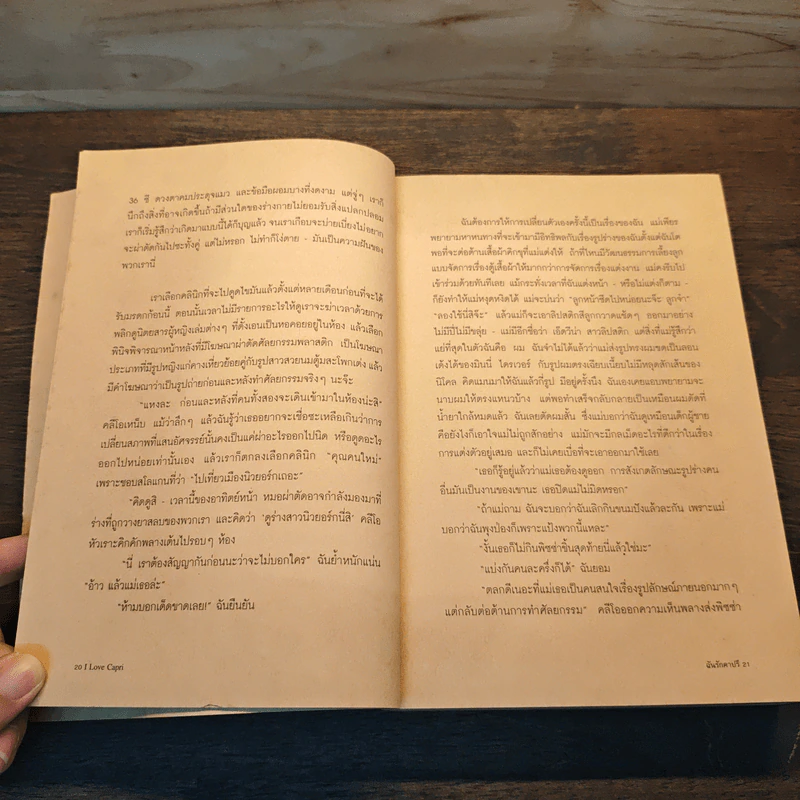 36 ซี ดวงตาคมประดุจแมว และข้อมือผอมบางที่งดงาม แต่จู่ๆ เราก็
นึกถึงสิ่งที่อาจเกิดขึ้นถ้ามีส่วนใดของร่างกายไม่ยอมรับสิ่งแปลกปลอม
เราก็เริ่มรู้สึกว่าเกิดมาแบบนี้ได้ก็บุญแล้ว จนเราเกือบจะบ่ายเบี่ยงไม่อยาก
จะผ่าตัดกันไปซะทั้งคู่ แต่ไม่หรอก ไม่ทำก็โง่ตาย - มันเป็นความฝันของ
พวกเรานี่
เราเลือกคลินิกที่จะไปดูดไขมันแล้วตั้งแต่หลายเดือนก่อนที่จะได้
รับมรดกก้อนนี้ ตอนนั้นเวลาไม่มีรายการอะไรให้ดูเราจะฆ่าเวลาด้วยการ
พลิกดูนิตยสารผู้หญิงเล่มต่างๆ ที่ตั้งเอนเป็นหอคอยอยู่ในห้อง แล้วเลือก
พินิจพิจารณาหน้าหลังที่มีโฆษณาผ่าตัดศัลยกรรมพลาสติก เป็นโฆษณา
ประเภทที่มีรูปหญิงแก่คางเหี่ยวย้อยคู่กับรูปสาวสวยนมตู้มสะโพกเต่ง แล้ว
มีคำโฆษณาว่าเป็นรูปถ่ายก่อนและหลังทำศัลยกรรมจริงๆ นะจ๊ะ
"แหงละ ก่อนและหลังที่คนทั้งสองจะเดินเข้ามาในห้องน่ะสิ"
คลีโอเหน็บ แม้ว่าลึกๆ แล้วฉันรู้ว่าเธออยากจะเชื่อซะเหลือเกินว่าการ
เปลี่ยนสภาพที่แสนอัศจรรย์นั่นคงเป็นแค่ผ่าอะไรออกไปนิด หรือดูดอะไร
ออกไปหน่อยเท่านั้นเอง แล้วเราก็ตกลงเลือกคลินิก "คุณคนใหม่"
เพราะชอบสโลแกนที่ว่า "ไปเที่ยวเมืองนิวยอร์กเถอะ"
"คิดดูสิ - เวลานี้ของอาทิตย์หน้า หมอผ่าตัดอาจกำลังมองมาที่
ร่างที่ถูกวางยาสลบของพวกเรา และคิดว่า 'ดูร่างสาวนิวยอร์กนี่สิ' คลีโอ
หัวเราะคิกคักพลางเต้นไปรอบๆ ห้อง
"นี่ เราต้องสัญญากันก่อนนะว่าจะไม่บอกใคร" ฉันย้ำหนักแน่น
"อ้าว แล้วแม่เธอล่ะ"
"ห้ามบอกเด็ดขาดเลย!" ฉันยืนยัน
20 I Love Capri
ฉันต้องการให้การเปลี่ยนตัวเองครั้งนี้เป็นเรื่องของฉัน แม่เพียร
พยายามหาหนทางที่จะเข้ามามีอิทธิพลกับเรื่องรูปร่างของฉันตั้งแต่ฉันโต
พอที่จะต่อต้านเสื้อผ้าคิกขุที่แม่แต่งให้ ถ้าที่ไหนมีวัฒนธรรมการเลี้ยงลูก
แบบจัดการเรื่องตู้เสื้อผ้าให้มากกว่าการจัดการเรื่องแต่งงาน แม่คงรีบไป
เข้าร่วมด้วยทันทีเลย แม้กระทั่งเวลาที่ฉันแต่งหน้า - หรือไม่แต่งก็ตาม -
ก็ยังทำให้แม่หงุดหงิดได้ แม่จะบ่นว่า "ลูกหน้าซีดไปหน่อยนะจ๊ะ ลูกจ๋า"
"ลองใช้นี่สิจ๊ะ" แล้วแม่ก็จะเอาลิปสติกสีลูกกวาดแช้ดๆ ออกมาอย่าง
ไม่มีปี่มีขลุ่ย - แม่มีอีกชื่อว่า เอ็ดวีน่า สาวลิปสติก แต่สิ่งที่แม่รู้สึกว่า
แย่ที่สุดในตัวฉันคือ ผม ฉันจำไม่ได้แล้วว่าแม่ส่งรูปทรงผมขดเป็นลอน
เด้งได้ของมินนี่ ไดรเวอร์ กับรูปผมตรงเฉียบเนี้ยบไม่มีหลุดสักเส้นของ
นิโคล คิดแมนมาให้ฉันแล้วกี่รูป มีอยู่ครั้งนึง ฉันเองเคยแอบพยายามจะ
นาบผมให้ตรงแหนวบ้าง แต่พอทำเสร็จกลับกลายเป็นเหมือนผมดัดที่
น้ำยาใกล้หมดแล้ว ฉันเลยตัดผมสั้น ซึ่งแม่บอกว่าฉันดูเหมือนเด็กผู้ชาย
คือยังไงก็เอาใจแม่ไม่ถูกสักอย่าง แม่มักจะมีกลเม็ดอะไรที่ดีกว่าในเรื่อง
การแต่งตัวอยู่เสมอ และก็ไม่เคยเบื่อที่จะเอาออกมาใช้เลย
"เธอก็รู้อยู่แล้วว่าแม่เธอต้องดูออก การสังเกตลักษณะรูปร่างคน
อื่นมันเป็นงานของเขานะ เธอปิดแม่ไม่มิดหรอก"
"ถ้าแม่ถาม ฉันจะบอกว่าฉันเลิกกินขนมปังแล้วละกัน เพราะแม่
บอกว่าฉันพุงป่องก็เพราะแป้งพวกนี้แหละ"
"งั้นเธอก็ไม่กินพิซซ่าชิ้นสุดท้ายนี่แล้วใช่มะ"
"แบ่งกันคนละครึ่งก็ได้" ฉันยอม
"ตลกดีเนอะที่แม่เธอเป็นคนสนใจเรื่องรูปลักษณ์ภายนอกมากๆ
แต่กลับต่อต้านการทำศัลยกรรม" คลีโอออกความเห็นพลางส่งพิซซ่า
ฉันรักคาปรี 21